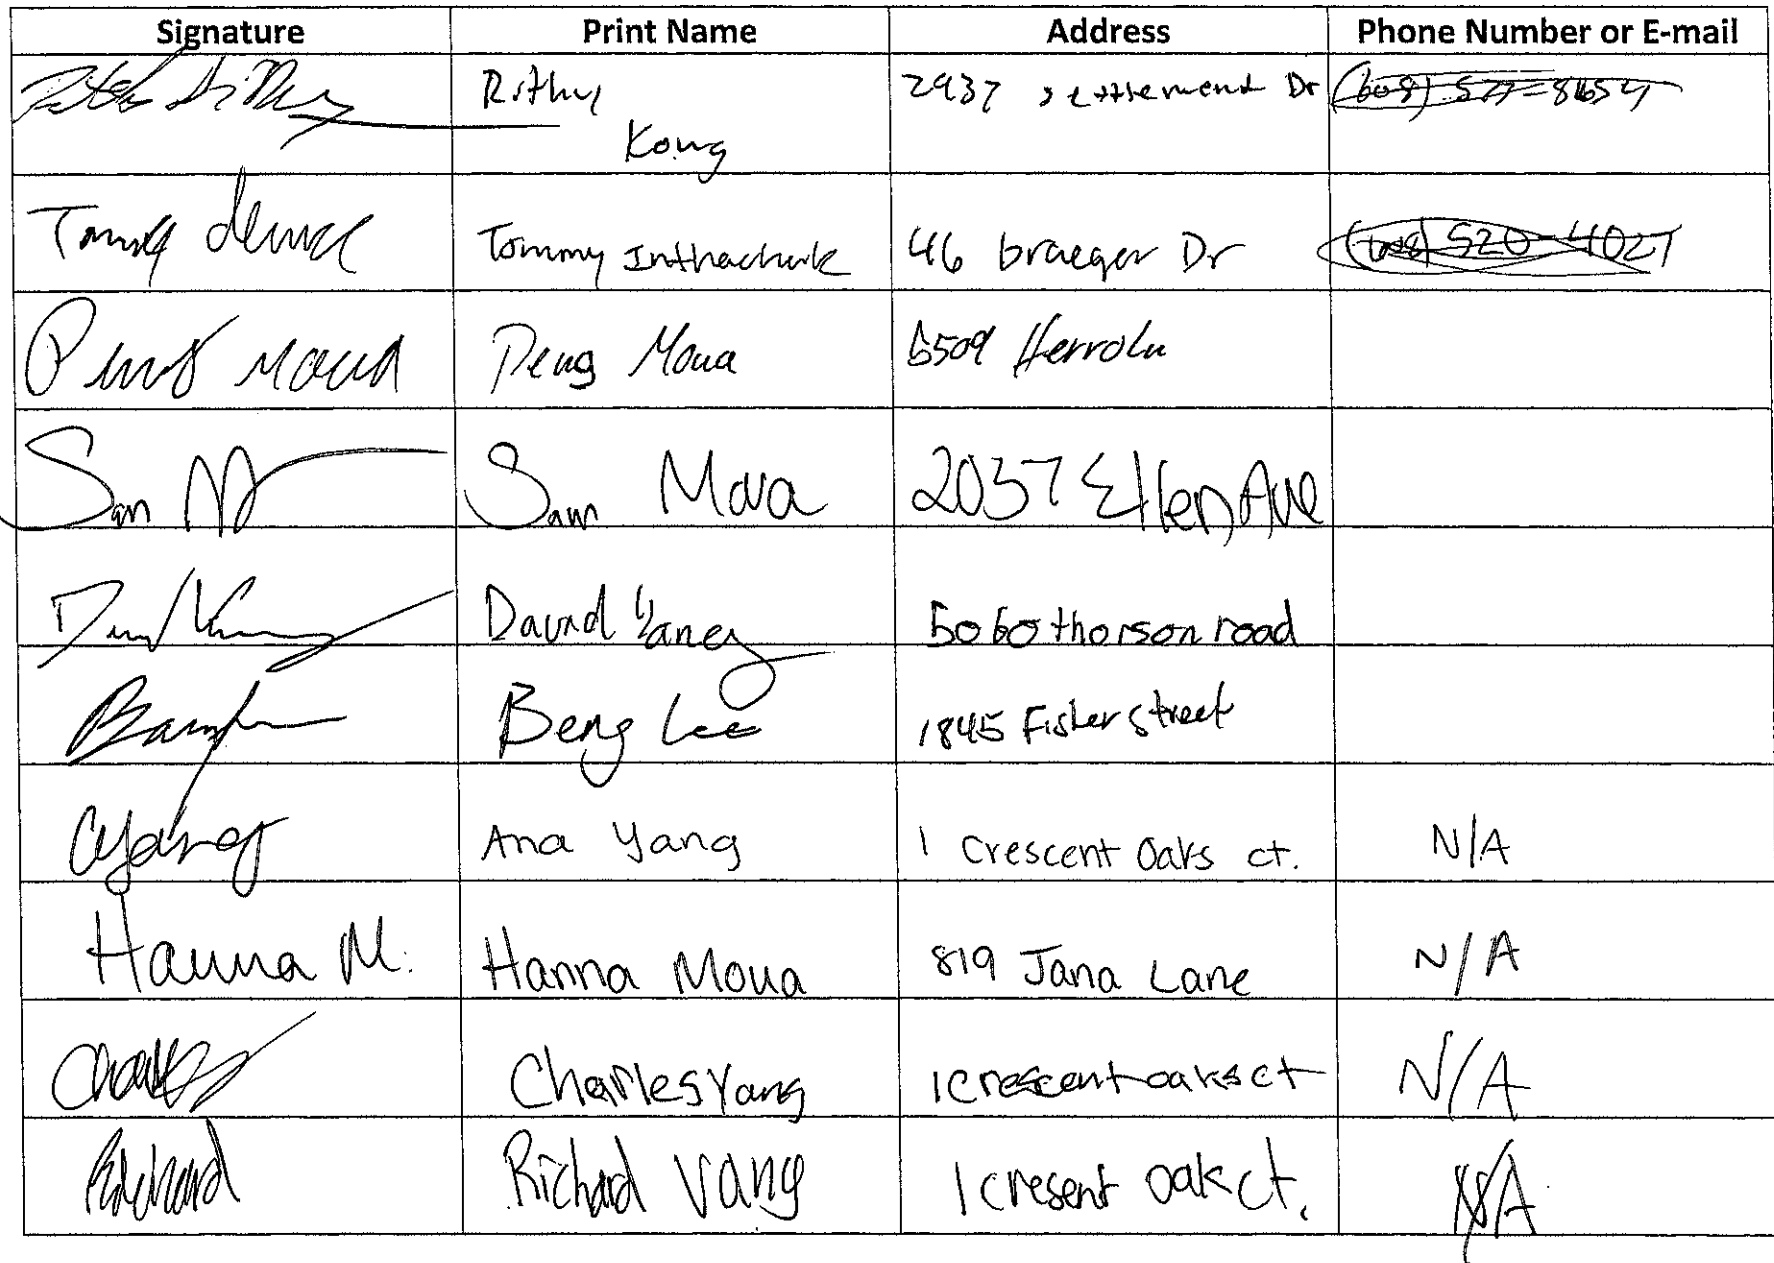 Signature Print Name Address Phone Number or E-mail
Rithy Kong 2937 settlement Dr
Tommy Inthachak 46 braeger Dr
Peng Moua 6509 Herro Ln
Sam M Sam Moua 2037 Ellen Ave
David Yang 5060 thorson road
Beng Lee 1845 Fisher Street
ayang Ana Yang 1 Crescent Oaks ct. N/A
Hanna M. Hanna Moua 819 Jana Lane N/A
Charles Yang 1 crescent oaks ct N/A
Richard Richard Vang 1 cresent oak ct. N/A